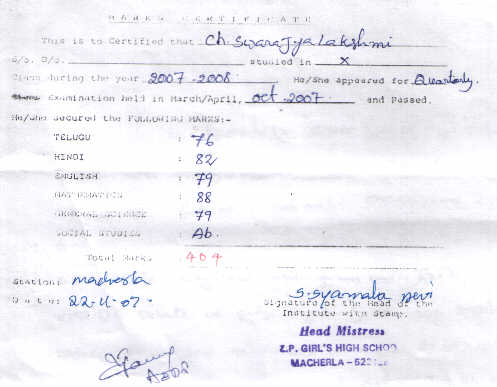 MARKS CERTIFICATE
This is to Certified that Ch. Swarajya Lakshmi
S/o. D/o. studied in X
Class during the year 2007-2008 He/She appeared for Quarterly.
Examination held in March/April, oct-2007 and Passed.
He/She secured the FOLLOWING MARKS:-
TELUGU : 76
HINDI : 82
ENGLISH : 79
MATHEMATICS : 88
GENERAL SCIENCE : 79
SOCIAL STUDIES : Ab.
Total Marks : 404
Station: macherla
Date: 22-11-07.
S. Syamala Devi
Signature of the Head of the
Institute with Stamp.
Head Mistress
Z.P. GIRL'S HIGH SCHOOL
MACHERLA - 522